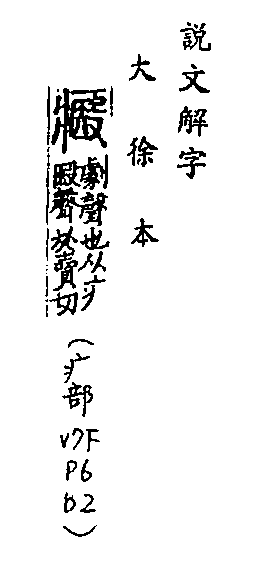 說文解字
大徐本
劇聲也从疒
殹聲於賣切
(疒部 V7F P6 02)